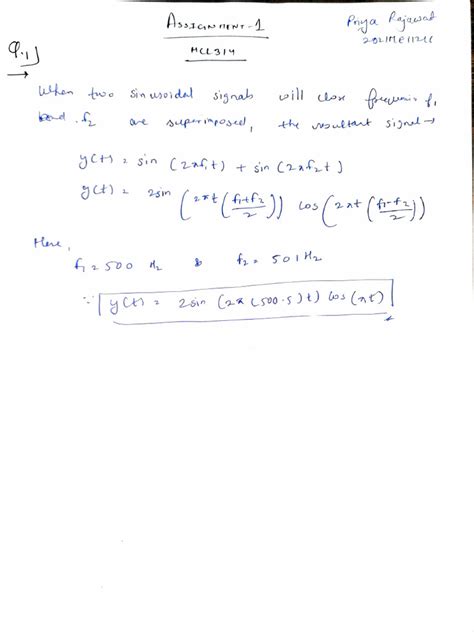 ASSIGNMENT-1
Priya Rajawat
MCL314
Q.1)
When two sinusoidal signals will close frequencies f₁
and f₂ are superimposed, the resultant signal →
y(t) = sin (2πf₁t) + sin (2πf₂t)
y(t) = 2sin (2πt ((f₁+f₂)/2)) cos (2πt ((f₁-f₂)/2))
Here,
f₁ = 500 Hz & f₂ = 501 Hz
∵ y(t) = 2sin (2π (500.5)t) cos (πt)